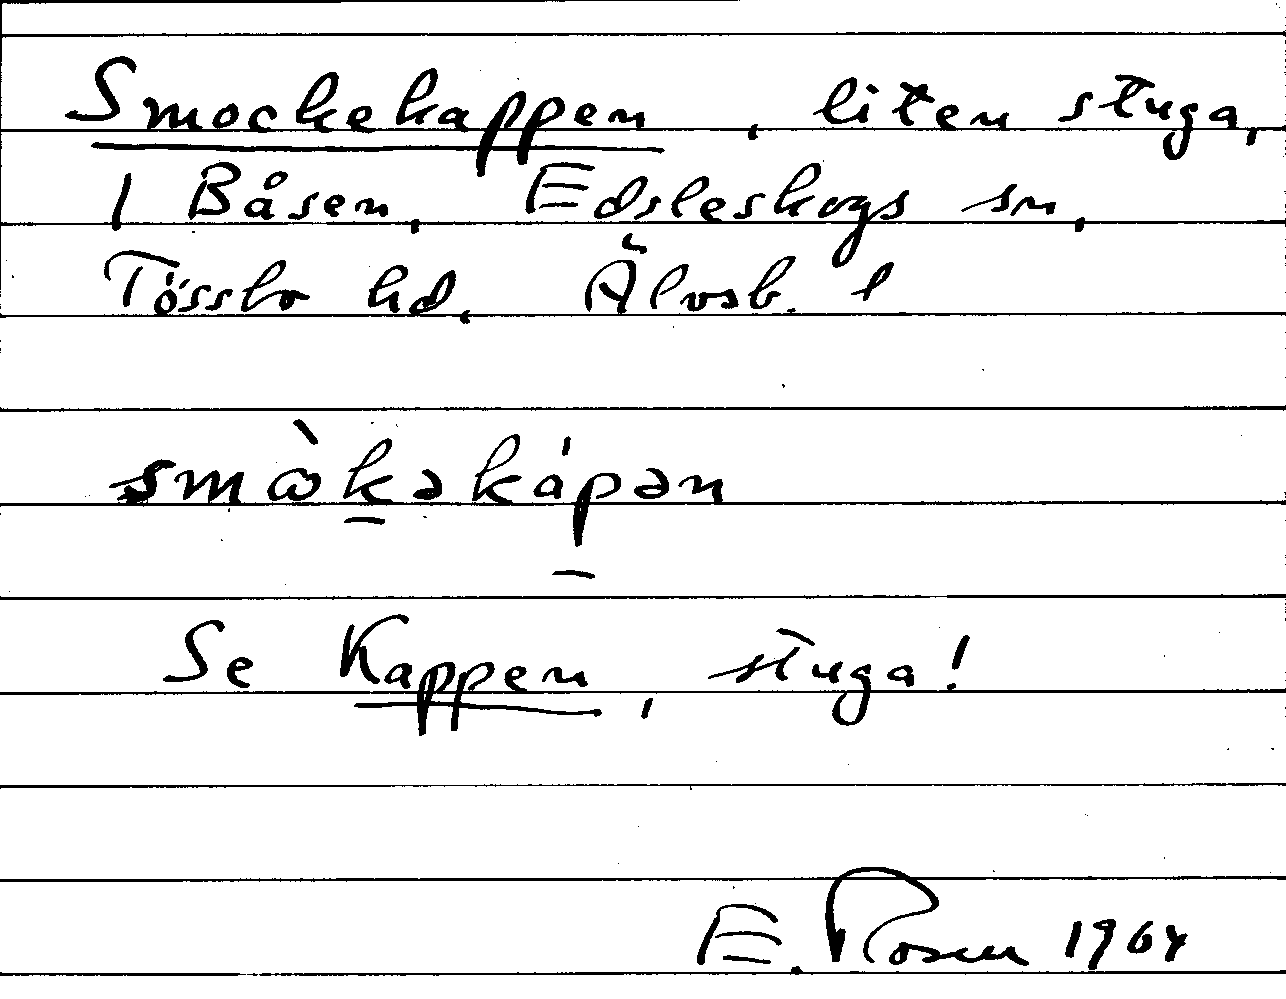 Smockekappen, liten stuga,
I Båsen, Edsleskogs sn,
Tössbo hd, Älvsb. l
smὼkəkápən
Se Kappen, stuga!
E. Rosen 1964